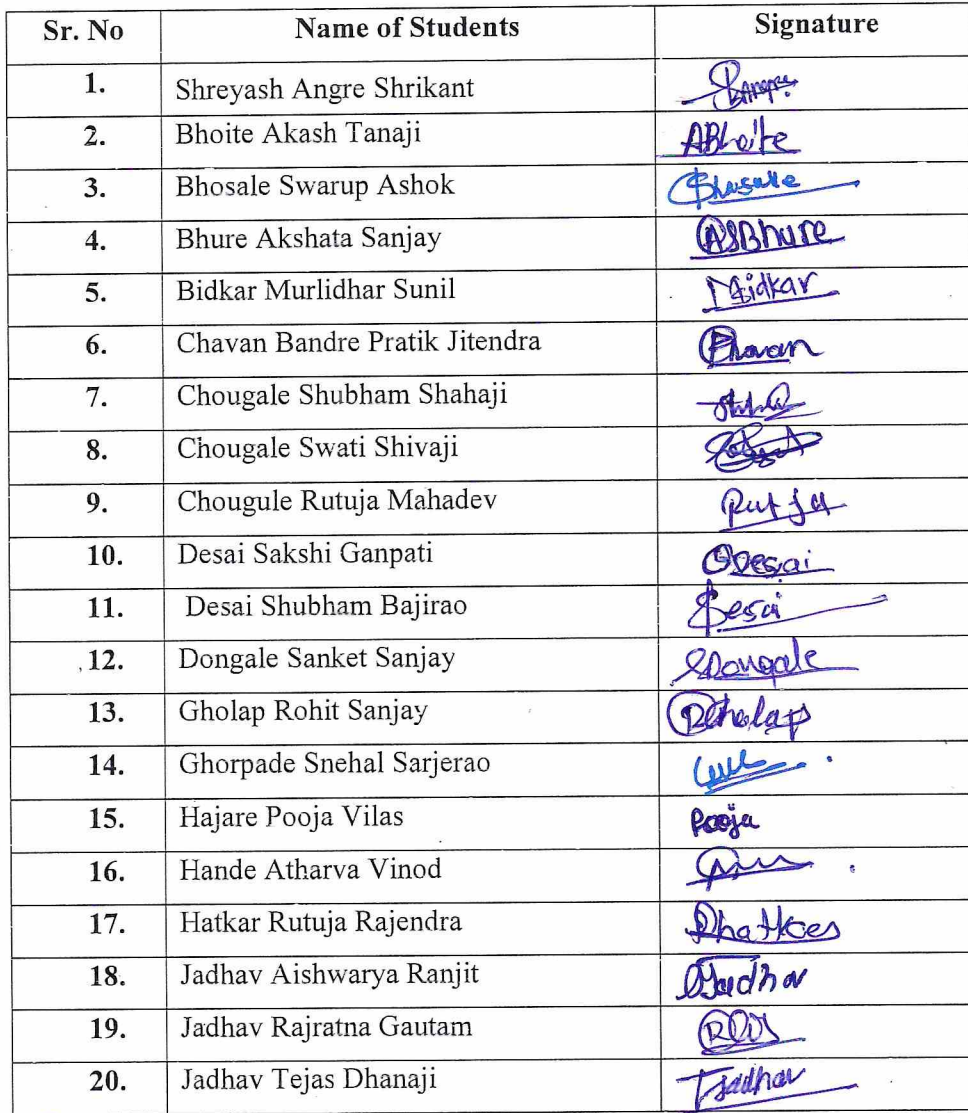 Sr. No Name of Students Signature
1. Shreyash Angre Shrikant
2. Bhoite Akash Tanaji ABhoite
3. Bhosale Swarup Ashok
4. Bhure Akshata Sanjay ASBhure
5. Bidkar Murlidhar Sunil
6. Chavan Bandre Pratik Jitendra
7. Chougale Shubham Shahaji
8. Chougale Swati Shivaji
9. Chougule Rutuja Mahadev
10. Desai Sakshi Ganpati
11. Desai Shubham Bajirao
12. Dongale Sanket Sanjay
13. Gholap Rohit Sanjay
14. Ghorpade Snehal Sarjerao
15. Hajare Pooja Vilas Pooja
16. Hande Atharva Vinod
17. Hatkar Rutuja Rajendra
18. Jadhav Aishwarya Ranjit
19. Jadhav Rajratna Gautam
20. Jadhav Tejas Dhanaji TJadhav